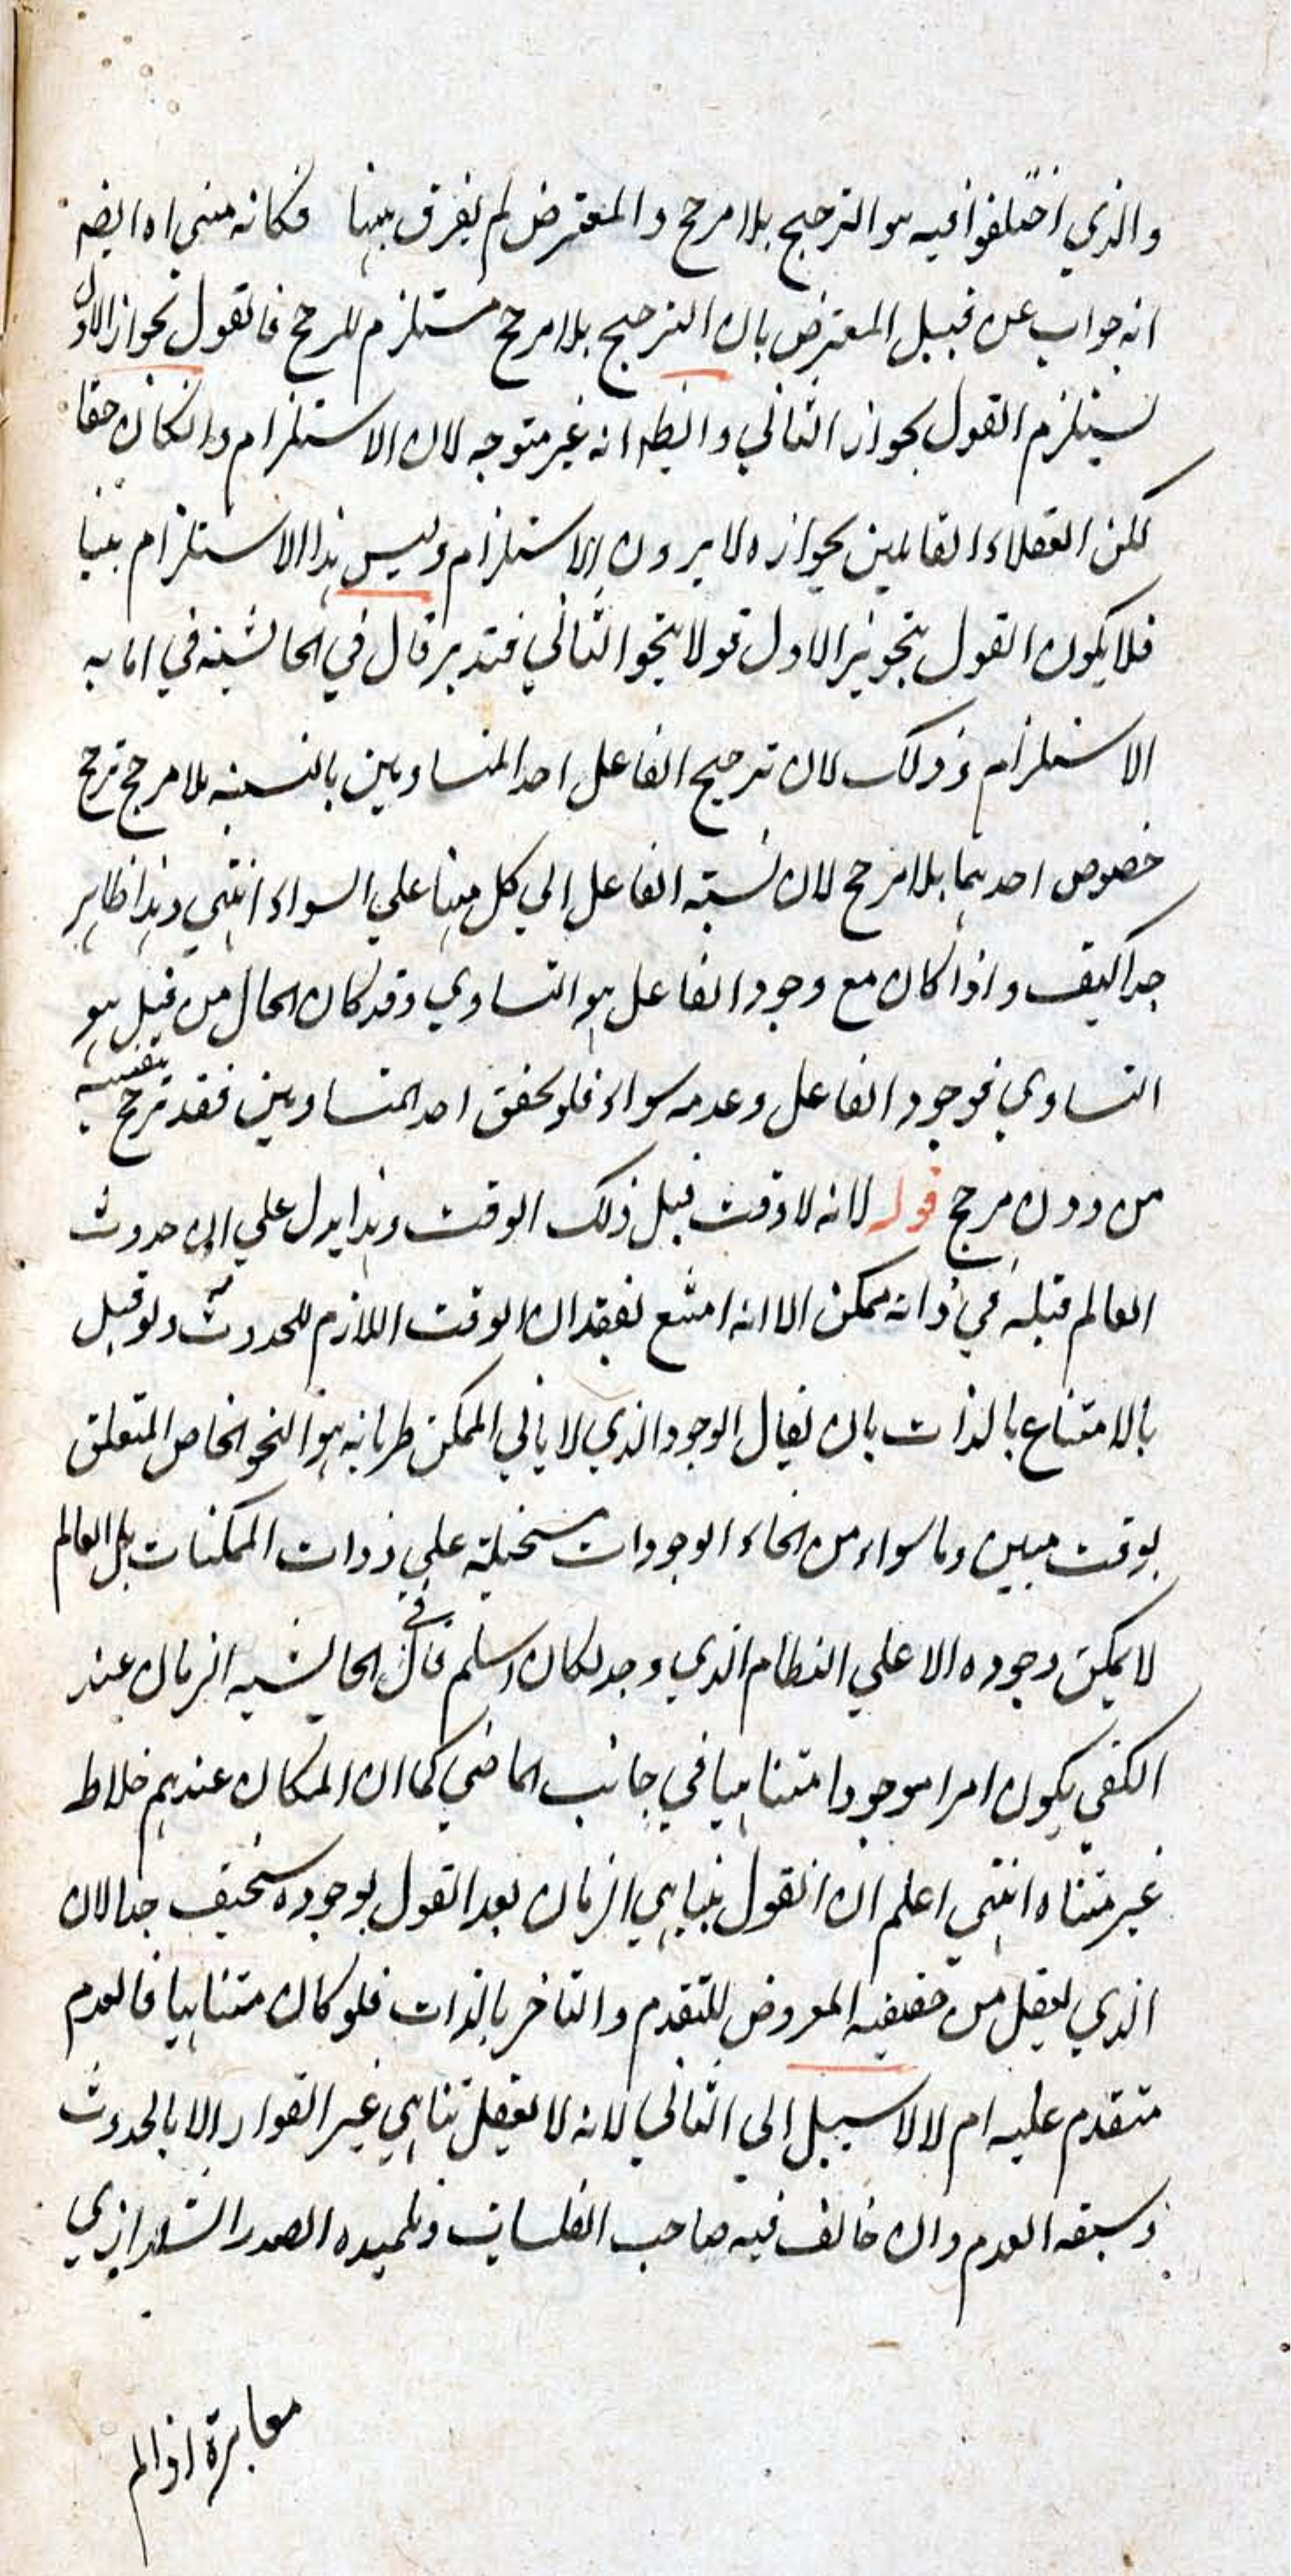 والذي اختلفوا فيه هو الترجيح بلا مرجح والمعترض لم يفرق بينهما فكانه منى اه ايضه
انه جواب عن قبيل المعترض بان الترجيح بلا مرجح مستلزم للرجح فالقول بجواز الاول
يستلزم القول بجواز الثاني وايضه انه غير متوجه لان الاستلزام وانكان حقا
لكن العقلاء القايلين بجوازه لا يرون الاستلزام وليس هذا الاستلزام بينا
فلا يكون القول بتجويز الاول قولا بتجو الثاني فتدبر قال في الحاشيه في اما به
الاستلزام وذلك لان ترجيح الفاعل احد المتساويين بالنسبه بلا مرجح ترجح
خصوص احدهما بلا مرجح لان نسبته الفاعل الي كل منهما علي السواء انتهي وهذا ظاهر
جدا كيف واذا كان مع وجود الفاعل هو التساوي وقد كان الحال من قبل هو
التساوي فوجود الفاعل وعدمه سواء فلو تحقق احد المتساويين فقد ترجح بنفسه
من دون مرجح قوله لانه لا وقت قبل ذلك الوقت وهذا يدل علي ان حدوث
العالم قبله في ذاته ممكن الا انه امتنع لفقدان الوقت اللازم للحدوث ولو قيل
بالامتناع بالذات بان يقال الوجود الذي لا يابي الممكن طريانه هو النحو الخاص المتعلق
بوقت مبين وما سواه من انحاء الوجودات مستحيلة علي ذوات الممكنات بل العالم
لا يمكن وجوده الا علي النظام الذي وجد لكان اسلم قال في الحاشيه الزمان عند
المكفي يكون امرا موجودا متناهيا في جانب الماضي كما ان المكان عندهم خلاط
غير متناه انتهي اعلم ان القول بتناهي الزمان بعد القول بوجوده سخيف جدا لان
الذي يعقل من حقيقيه المعروض للتقدم والتاخر بالذات فلو كان متناهيا فالعدم
متقدم عليه ام لا لا سبيل الي الثاني لانه لا يعقل تناهي غير القوار الا بالحدوث
وسبقه العدم وان خالف فيه صاحب القبسات وتلميذه الصدر الشيرازي
معابرة اذ الم